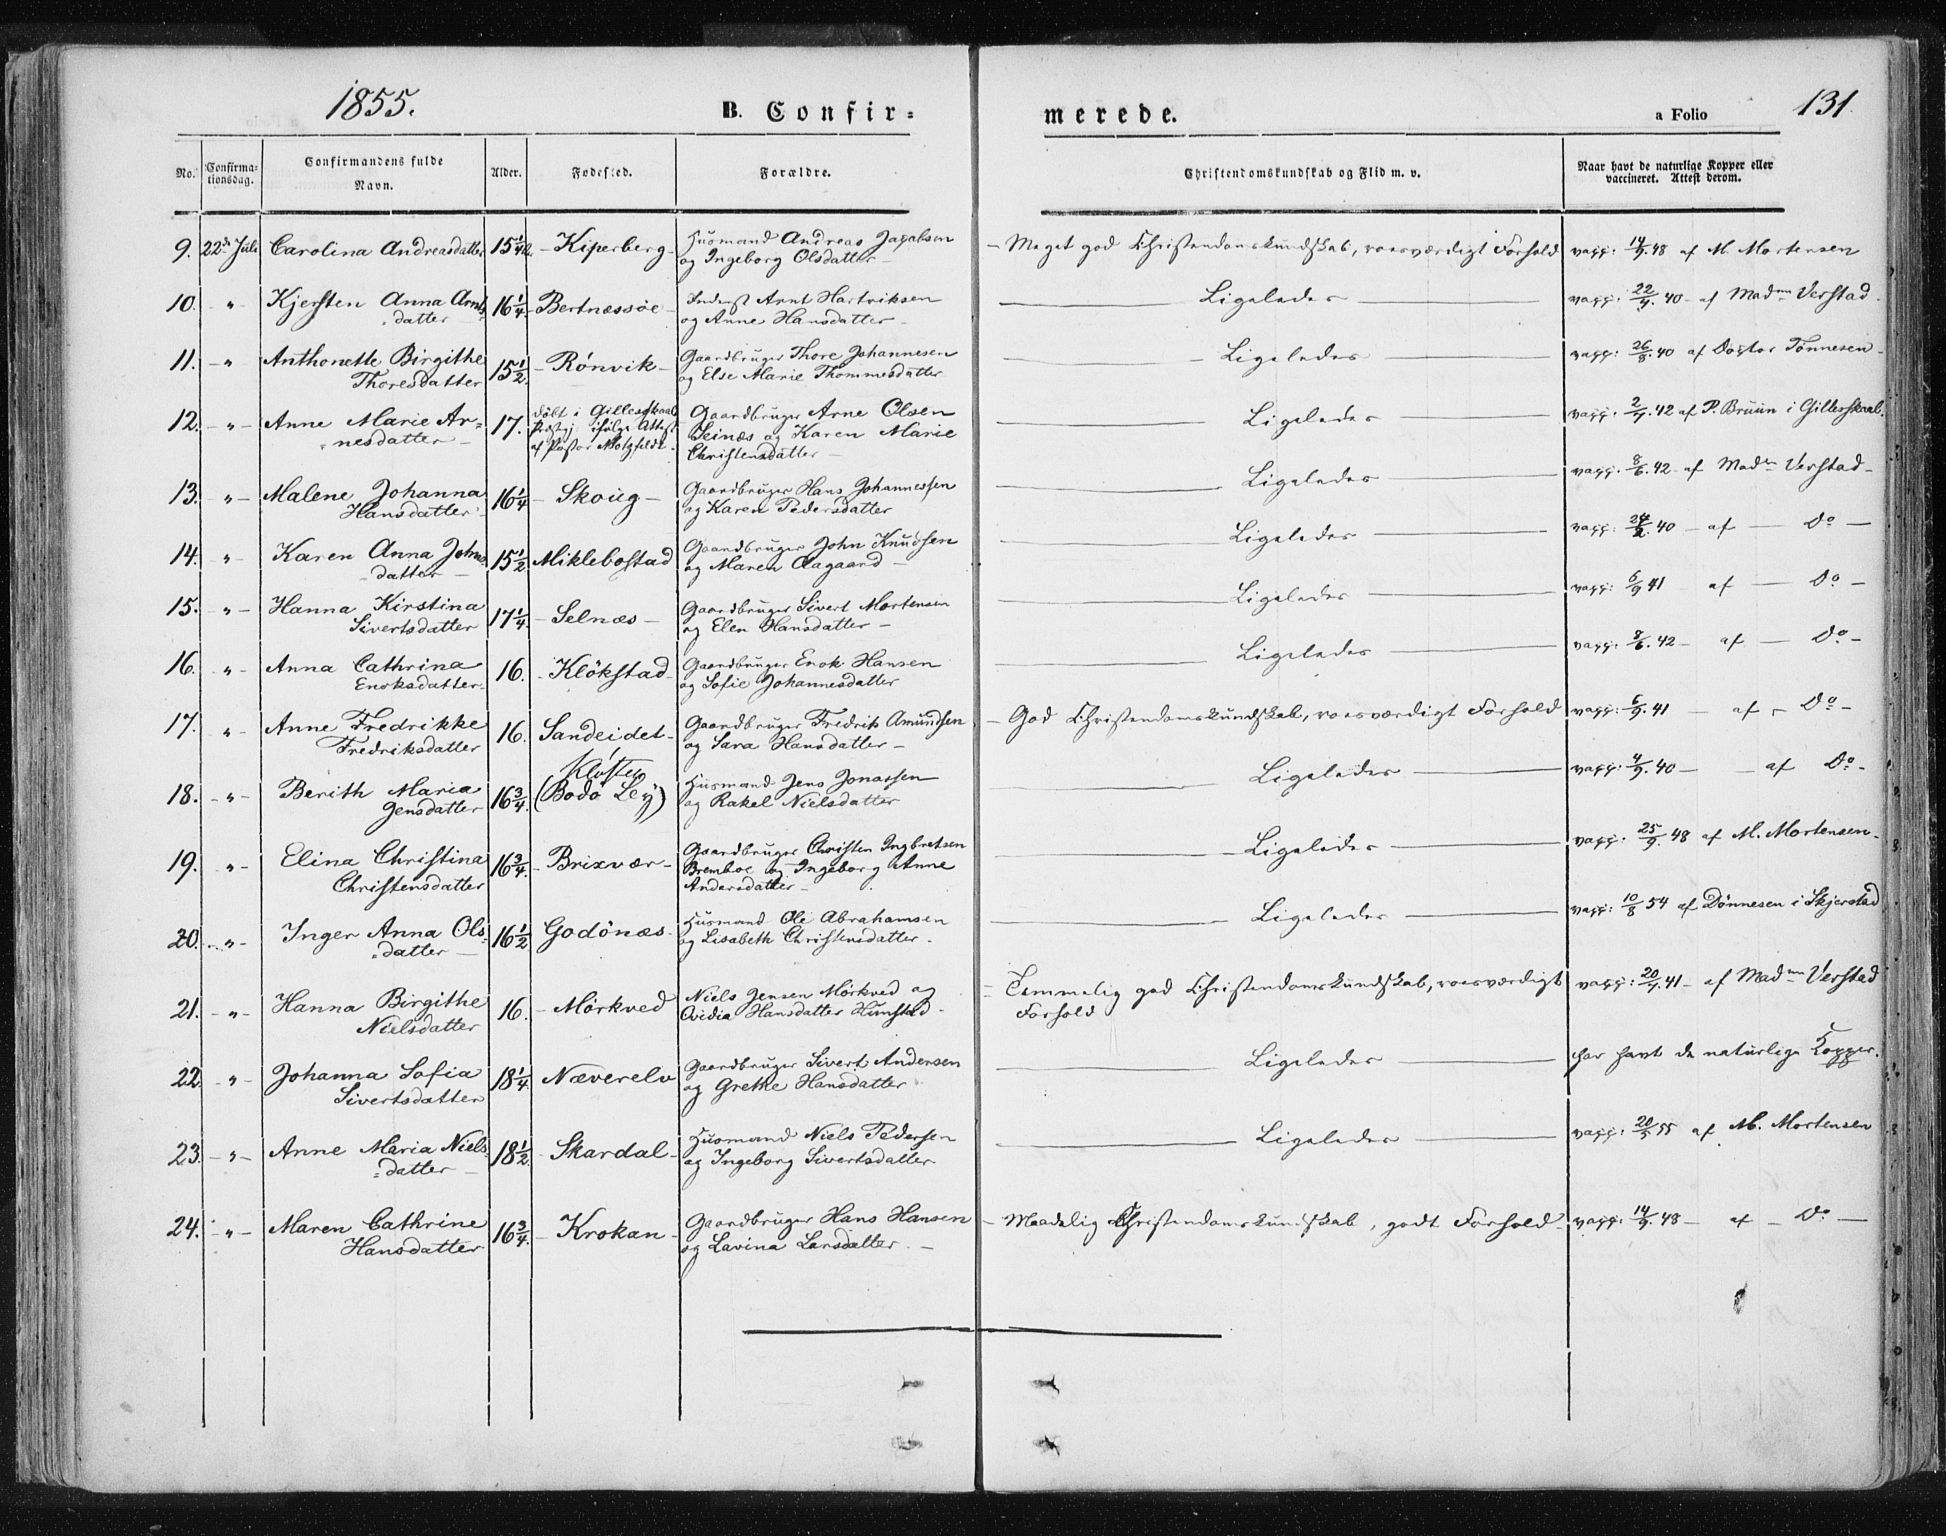 1855.
B. Confir-
merede.
a Folio
131.
No.
Confirma-
tionsdag.
Confirmandens fulde
Navn.
Alder.
Fødested.
Forældre.
Christendomskundskab og Flid m. v.
Naar havt de naturlige Kopper eller
vaccineret. Attest derom.
9. 22de Juli Carolina Andreasdatter 15 1/4 - Kiperberg - Huusmand Andreas Jacobsen
og Ingeborg Olsdatter -
- Meget god Christendomskundskab, roesværdigt Forhold vacc: 14/9.48 af M. Mortensen
10. - " - Kjersten Anna Arnts= 16 1/4 - Bertnæssøe - Inderst Arnt Hartviksen
=datter - og Anne Hansdatter -
Ligeledes vacc: 22/9.40 - af Madme Verstad.
11. - " - Anthonette Birgithe 15 1/2. - Rønvik - Gaardbruger Thore Johannesen
Thoresdatter og Else Marie Thommesdatter
Ligeledes vacc: 26/8.40 af Doctor Tönnesen -
12. - " - Anne Marie Ar= 17. Døbt i Gilleskaal Gaardbruger Arne Olsen
=nesdatter - Præstgj. ifølge Attest Seinæs og Karen Marie
af Pastor Motzfeldt. Christensdatter -
Ligeledes vacc: 2/9.42 af P. Bruun i Gilleskaal.
13. - " - Malene Johanna 16 1/4 - Skoug - Gaardbruger Hans Johannessen
Hansdatter - og Karen Pedersdatter
Ligeledes vacc: 8/6.42 - af Madm Verstad -
14. - " - Karen Anna Johns= 15 1/2 Miklebostad Gaardbruger John Knudsen
=datter - og Maren Aagaard -
Ligeledes vacc: 40 - af - Do -
15. - " - Hanna Kirstina 17 1/4. - Selnæs - Gaardbruger Sivert Mortensen
Sivertsdatter og Elen Hansdatter -
Ligeledes vacc: 6/9 41 af - Do -
16. - " - Anna Cathrina 16. - Klökstad - Gaardbruger Enok Hansen
Enoksdatter - og Sofie Johannesdatter
Ligeledes vacc: 8/6.42 - af - Do -
17. - " - Anne Fredrikke 16. Sandeidet - Gaardbruger Fredrik Amundsen
Fredriksdatter og Sara Hansdatter -
- God Christendomskundskab, roesværdigt Forhold vacc: 6/9.41 - af - Do -
18. - " - Berith Maria 16 3/4. Klösten Huusmand Jens Jonassen
Jensdatter (Bodö Leÿ) og Rakel Nielsdatter
Ligeledes vacc: 4/9.40 - - af Do -
19. - " - Elina Christina 16 3/4. - Brixvær - Gaardbruger Christen Ingbretsen
Christensdatter Bremboe og Ingeborg Anne
Andersdatter -
Ligeledes vacc: 25/9.48 af M. Mortensen -
20. - " - Inger Anna Ols= 16 1/2 Godönæs - Huusmand Ole Abrahamsen
=datter - og Lisabeth Christensdatter -
Ligeledes vacc: 10/8 54 af Dönnesen i Skjerstad
21. - " - Hanna Birgithe 16. - Mörkved Niels Jensen Mörkved og
Nielsdatter Ovidia Hansdatter Hunstad -
- Temmelig god Christendomskundskab, roesværdigt
Forhold vacc: 20/9.41 - af Madme Verstad
22. - " - Johanna Sofia 18 1/4. Næverelv Gaardbruger Sivert Andersen
Sivertsdatter og Grethe Hansdatter
Ligeledes har havt de naturlige Kopper.
23. - " - Anne Maria Niels= 18 1/2. - Skardal - Huusmand Niels Pedersen
=datter - og Ingeborg Sivertsdatter
Ligeledes vacc: 20/5 55 af M. Mortensen
24. - " - Maren Cathrine 16 3/4. - Krokan - Gaardbruger Hans Hansen
Hansdatter og Lavina Larsdatter. -
- Maadelig Christendomskundskab, godt Forhold - vacc: 14/9.48 - af - Do -